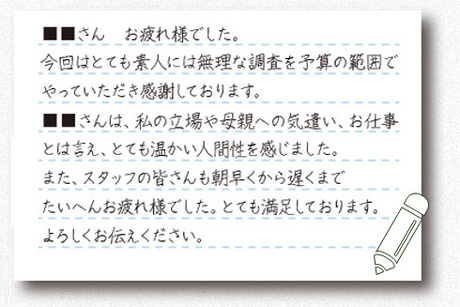 ■■さん　お疲れ様でした。
今回はとても素人には無理な調査を予算の範囲で
やっていただき感謝しております。
■■さんは、私の立場や母親への気遣い、お仕事
とは言え、とても温かい人間性を感じました。
また、スタッフの皆さんも朝早くから遅くまで
たいへんお疲れ様でした。とても満足しております。
よろしくお伝えください。